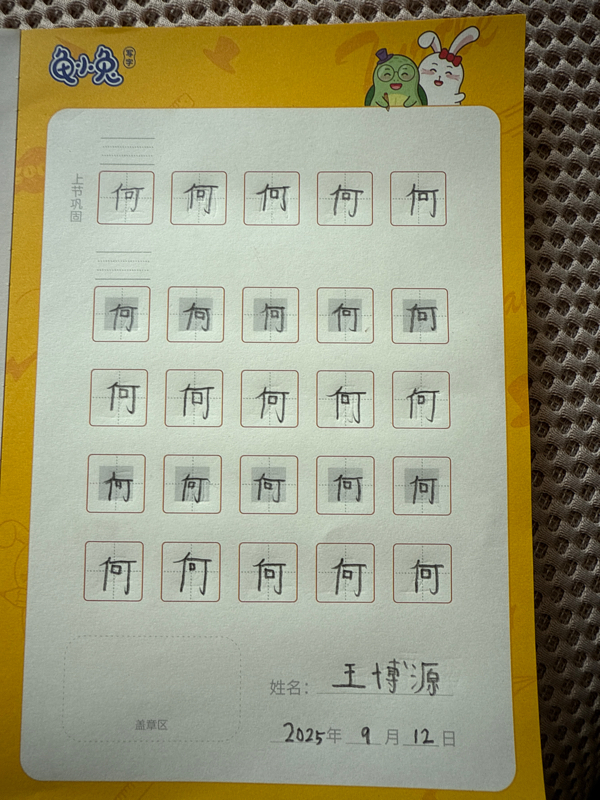 龟小兔写字
上节巩固
何 何 何 何 何
何 何 何 何 何
何 何 何 何 何
何 何 何 何 何
何 何 何 何 何
姓名：王博源
盖章区
2025年 9 月 12 日